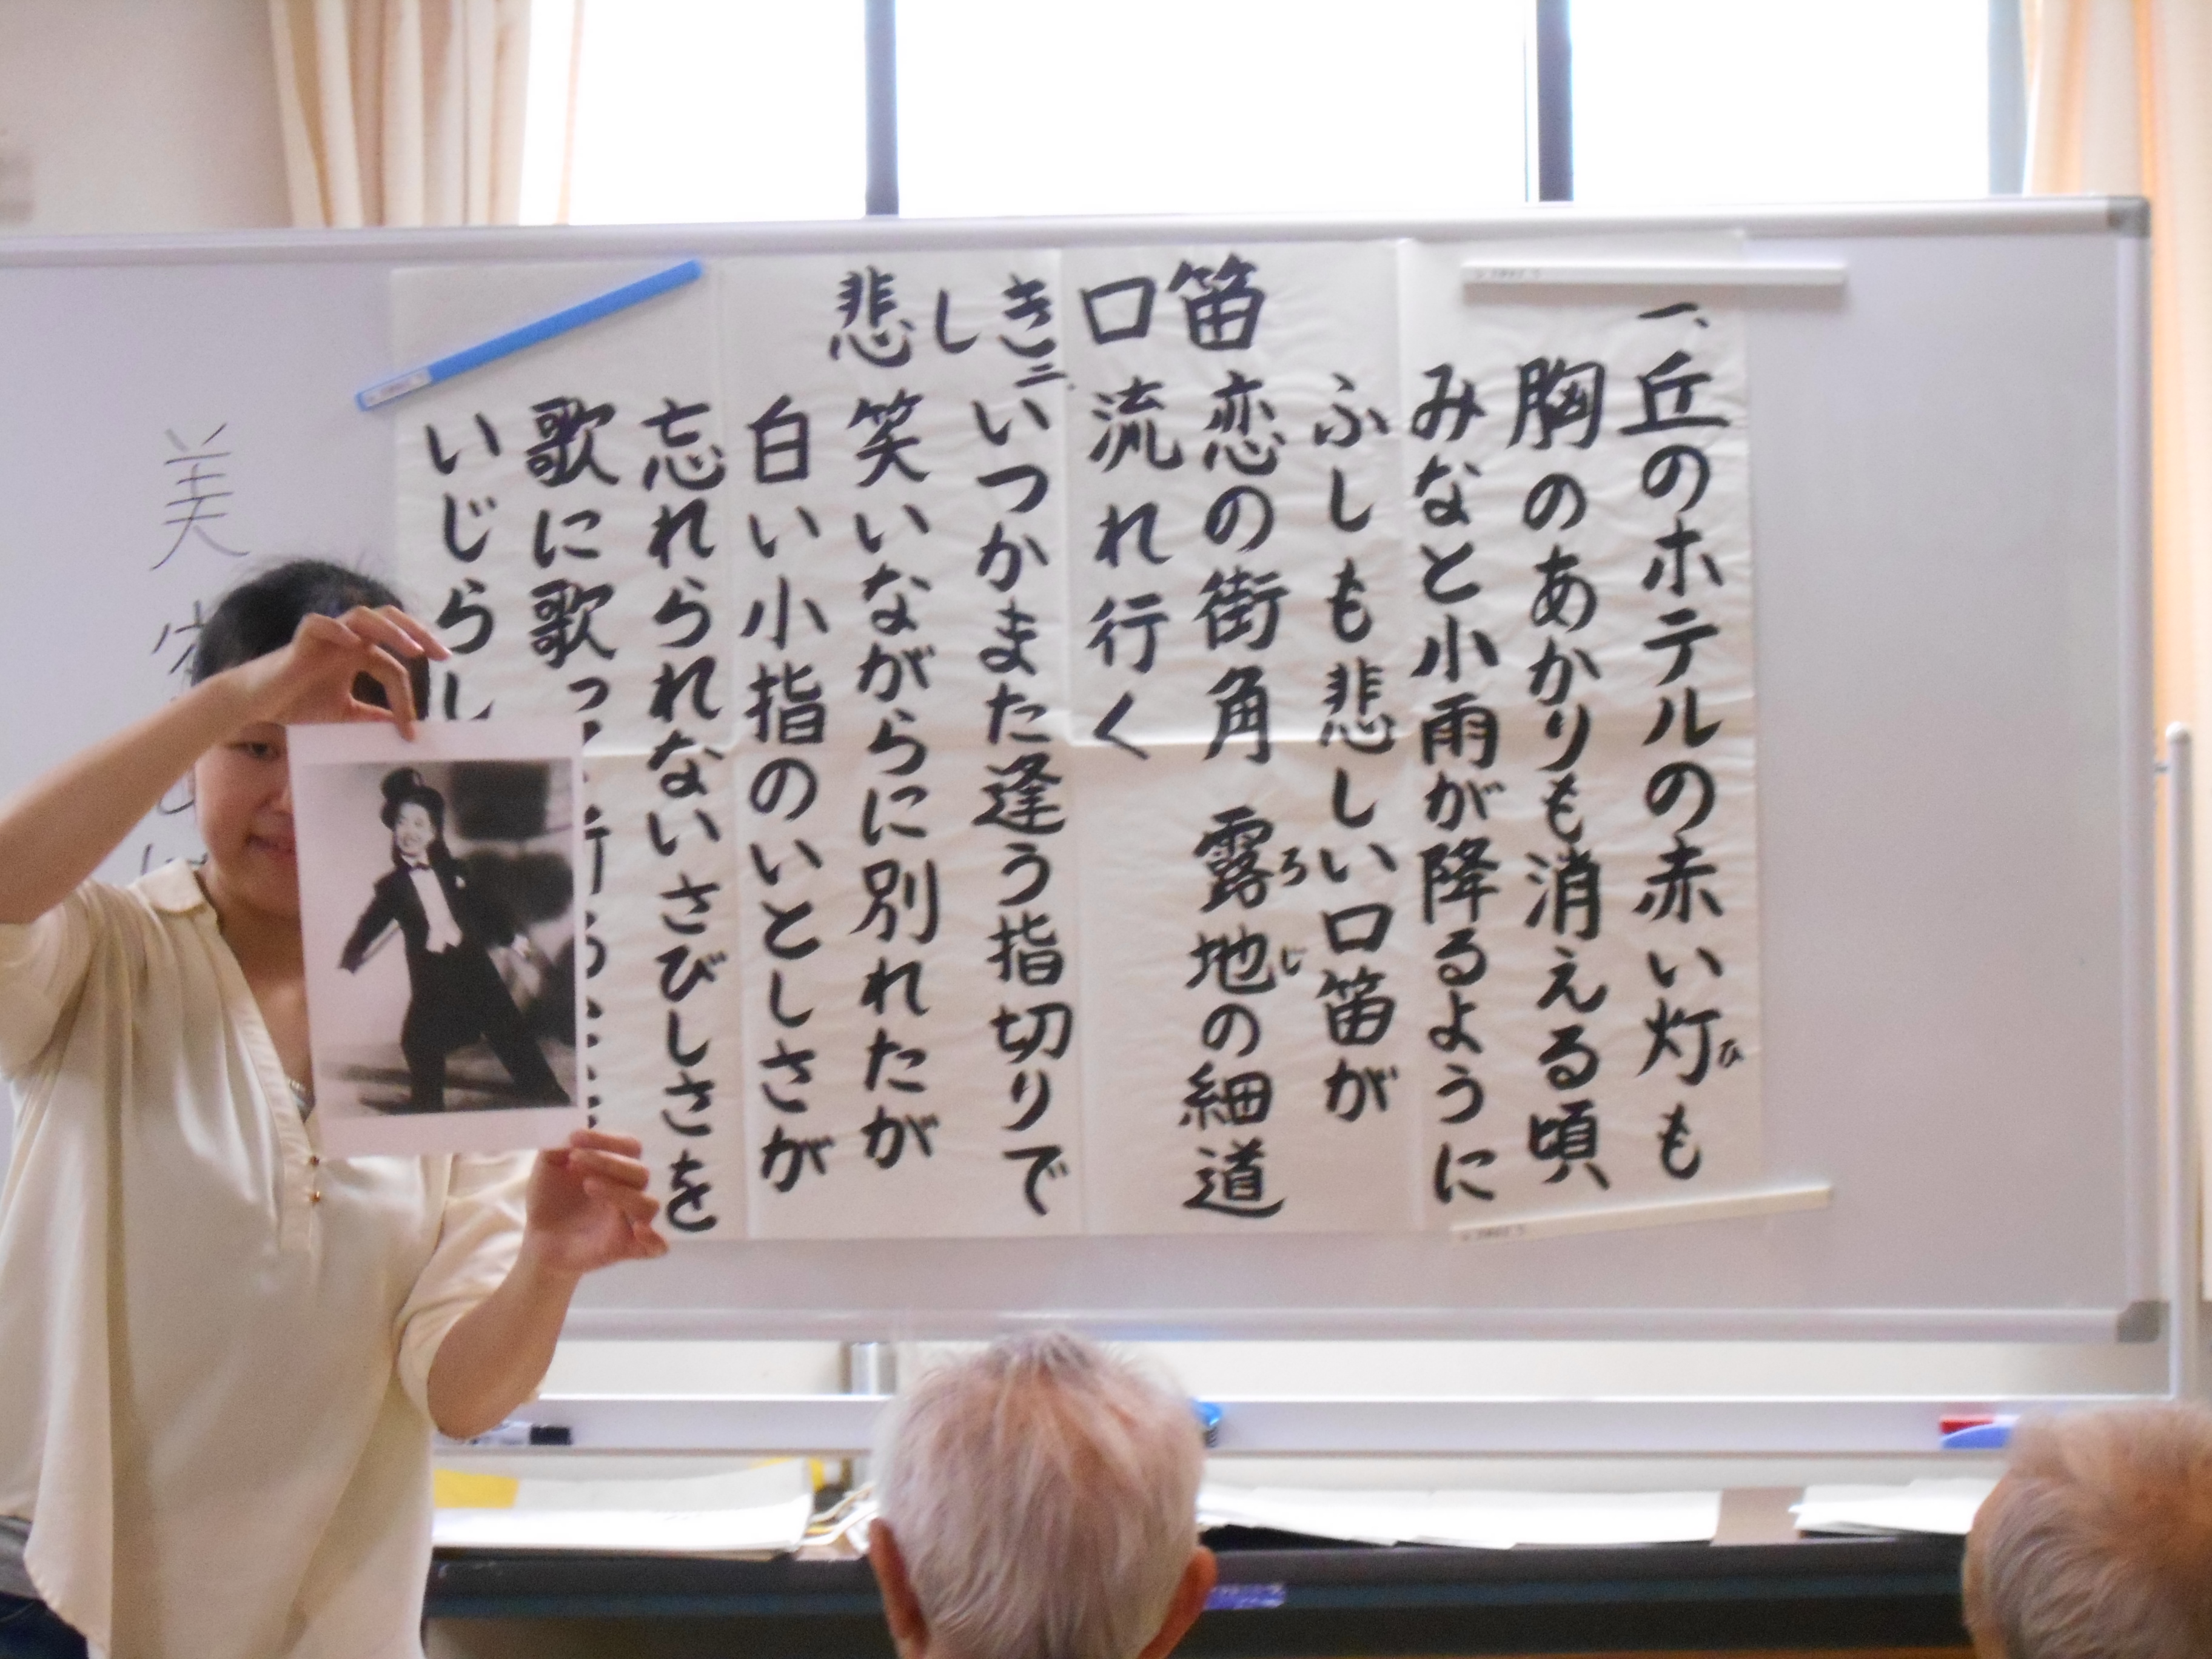 悲しき口笛
一、丘のホテルの赤い灯も
ひ
胸のあかりも消える頃
みなと小雨が降るように
ふしも悲しい口笛が
恋の街角 露地の細道
ろじ
流れ行く
二、いつかまた逢う指切りで
笑いながらに別れたが
白い小指のいとしさが
忘れられないさびしさを
歌に歌っ
いじらし
美